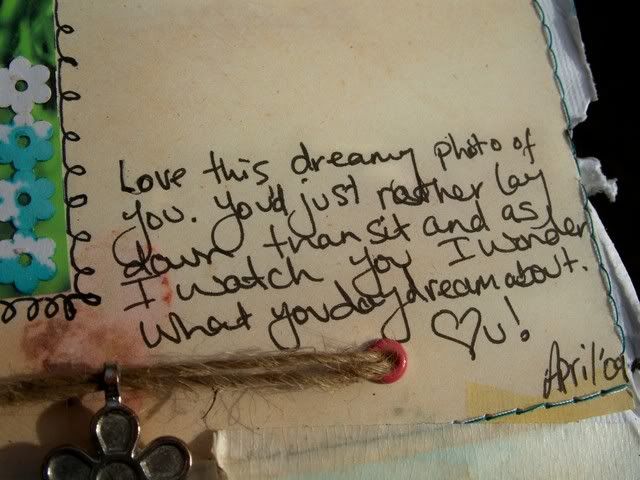 Love this dreamy photo of
you. You'd just rather lay
down than sit and as
I watch you I wonder
what you daydream about.
♡ u!
April '09